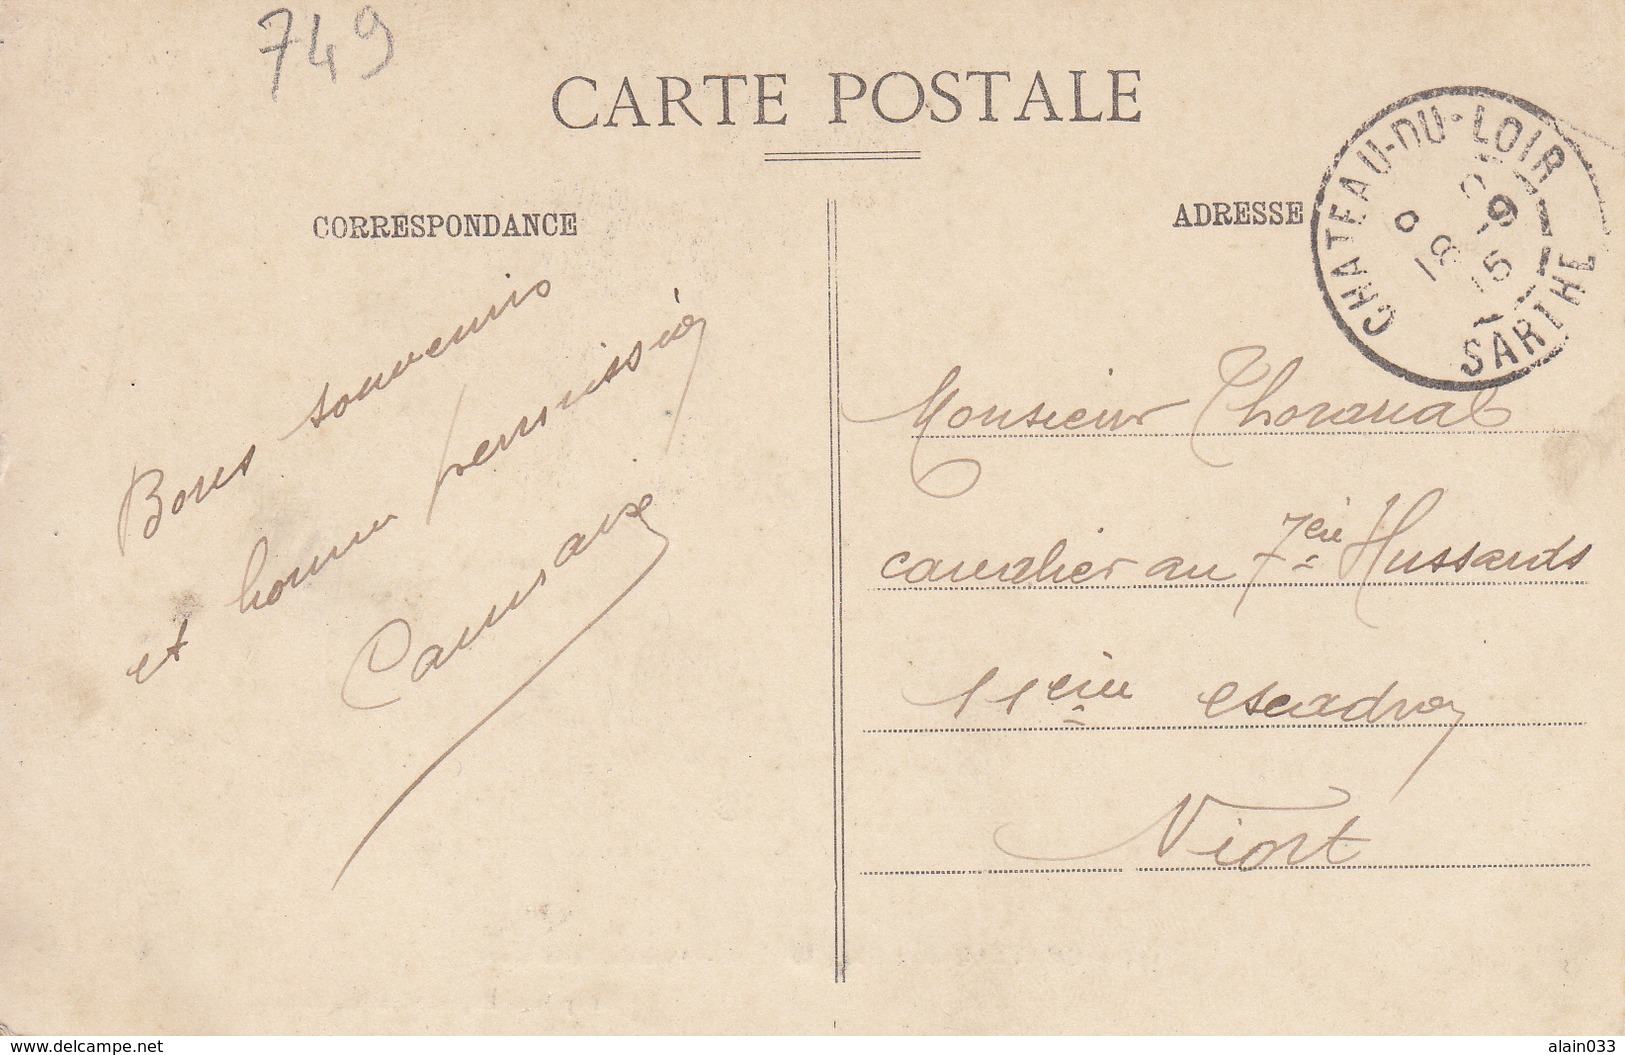 749
CARTE POSTALE
CORRESPONDANCE
ADRESSE
CHATEAU-DU-LOIR
SARTHE
Bons souvenirs
et bonne permission
Monsieur Thoraval
cavalier au 7eie Hussards
11eie escadron
Niort
www.delcampe.net
alain033